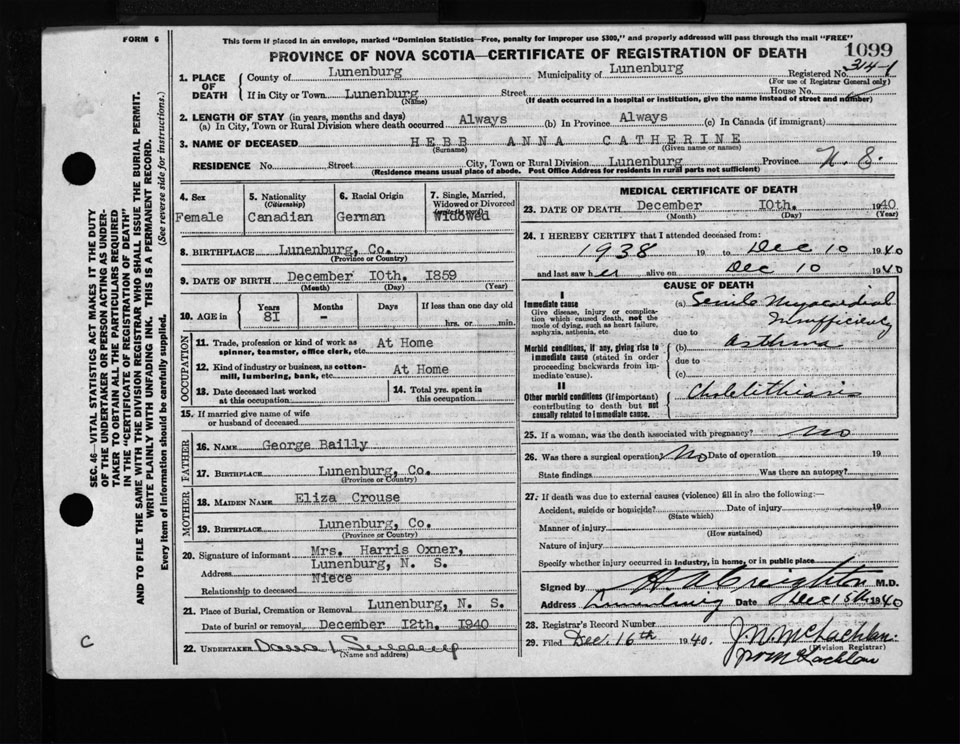 FORM 6
This form if placed in an envelope, marked "Dominion Statistics—Free, penalty for improper use $300," and properly addressed will pass through the mail "FREE"
PROVINCE OF NOVA SCOTIA—CERTIFICATE OF REGISTRATION OF DEATH
1099
1. PLACE OF DEATH
County of Lunenburg Municipality of Lunenburg Registered No. 314-1
(For use of Registrar General only)
If in City or Town Lunenburg Street House No.
(Name) (If death occurred in a hospital or institution, give the name instead of street and number)
2. LENGTH OF STAY (in years, months and days)
(a) In City, Town or Rural Division where death occurred Always (b) In Province Always (c) In Canada (if immigrant)
3. NAME OF DECEASED HEBB ANNA CATHERINE
(Surname) (Given name or names)
RESIDENCE No. Street City, Town or Rural Division Lunenburg Province N. S.
(Residence means usual place of abode. Post Office Address for residents in rural parts not sufficient)
4. Sex
Female
5. Nationality
(Citizenship)
Canadian
6. Racial Origin
German
7. Single, Married, Widowed or Divorced
Widowed
8. BIRTHPLACE Lunenburg, Co.
(Province or Country)
9. DATE OF BIRTH December 10th. 1859
(Month) (Day) (Year)
10. AGE in
Years Months Days If less than one day old
81 - hrs. or min.
OCCUPATION
11. Trade, profession or kind of work as spinner, teamster, office clerk, etc. At Home
12. Kind of industry or business, as cotton-mill, lumbering, bank, etc. At Home
13. Date deceased last worked at this occupation
14. Total yrs. spent in this occupation
15. If married give name of wife or husband of deceased
FATHER
16. NAME George Bailly
17. BIRTHPLACE Lunenburg, Co.
(Province or Country)
MOTHER
18. MAIDEN NAME Eliza Crouse
19. BIRTHPLACE Lunenburg, Co.
(Province or Country)
20. Signature of informant Mrs. Harris Oxner,
Address Lunenburg, N. S.
Relationship to deceased Niece
21. Place of Burial, Cremation or Removal Lunenburg, N. S.
Date of burial or removal December 12th. 1940
22. UNDERTAKER
(Name and Address)
MEDICAL CERTIFICATE OF DEATH
23. DATE OF DEATH December 10th. 1940
(Month) (Day) (Year)
24. I HEREBY CERTIFY that I attended deceased from:
1938 19 to Dec 10 1940
and last saw her alive on Dec 10 1940
CAUSE OF DEATH
I
Immediate cause
Give disease, injury or complication which caused death, not the mode of dying, such as heart failure, asphyxia, asthenia, etc.
(a) Senile Myocardial
Insufficiency
due to
Morbid conditions, if any, giving rise to immediate cause (stated in order proceeding backwards from immediate cause).
(b) Asthma
due to
(c)
II
Other morbid conditions (if important) contributing to death but not causally related to immediate cause.
Cholelithiasis
25. If a woman, was the death associated with pregnancy? No
26. Was there a surgical operation? No Date of operation 19
State findings Was there an autopsy?
27. If death was due to external causes (violence) fill in also the following:—
Accident, suicide or homicide? Date of injury 19
(State which)
Manner of injury
(How sustained)
Nature of injury
Specify whether injury occurred in industry, in home, or in public place
Signed by H A Creighton M.D.
Address Lunenburg Date Dec 15th 1940
28. Registrar's Record Number
29. Filed Dec. 16th 1940. J. W. McLachlan.
(Division Registrar)
SEC. 46—VITAL STATISTICS ACT MAKES IT THE DUTY
OF THE UNDERTAKER OR PERSON ACTING AS UNDER-
TAKER TO OBTAIN ALL THE PARTICULARS REQUIRED
IN THE "CERTIFICATE OF REGISTRATION OF DEATH"
AND TO FILE THE SAME WITH THE DIVISION REGISTRAR WHO SHALL ISSUE THE BURIAL PERMIT.
WRITE PLAINLY WITH UNFADING INK. THIS IS A PERMANENT RECORD.
Every item of information should be carefully supplied. (See reverse side for instructions.)
C